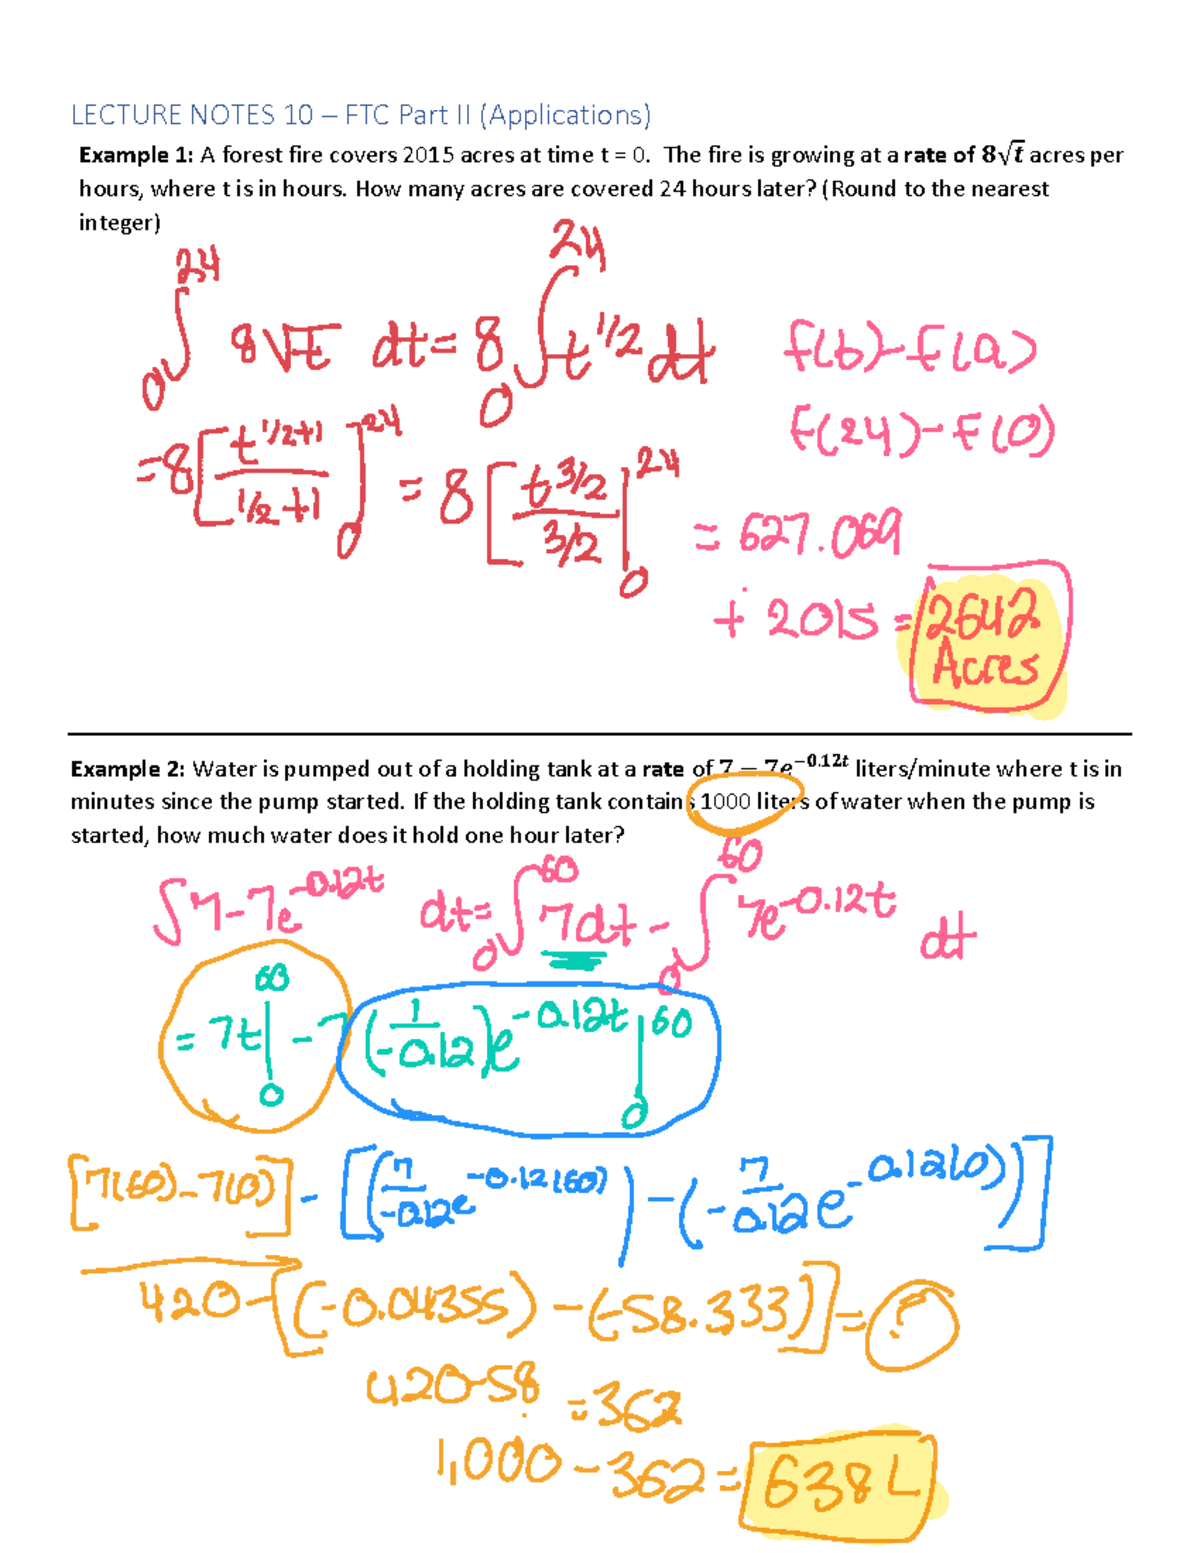 LECTURE NOTES 10 – FTC Part II (Applications)
Example 1: A forest fire covers 2015 acres at time t = 0. The fire is growing at a rate of 8√t acres per
hours, where t is in hours. How many acres are covered 24 hours later? (Round to the nearest
integer)
∫₀²⁴ 8√t dt = 8 ∫₀²⁴ t^1/2 dt
f(b)-f(a)
f(24)-f(0)
=8[t^(1/2+1)/(1/2+1)]₀²⁴ = 8[t^(3/2)/(3/2)|₀²⁴
= 627.069
+ 2015 = 2642
Acres
Example 2: Water is pumped out of a holding tank at a rate of 7 − 7e^−0.12t liters/minute where t is in
minutes since the pump started. If the holding tank contains 1000 liters of water when the pump is
started, how much water does it hold one hour later?
∫7-7e^-0.12t dt = ∫₀⁶⁰ 7dt - ∫₀⁶⁰ 7e^-0.12t dt
= 7t|₀⁶⁰ - 7(1/-0.12)e^-0.12t|₀⁶⁰
[7(60)-7(0)] - [(7/-0.12 e^-0.12(60)) - (-7/0.12 e^-0.12(0))]
420-[(-0.04355) - (-58.333)] = ?
420-58 = 362
1,000 - 362 = 638 L